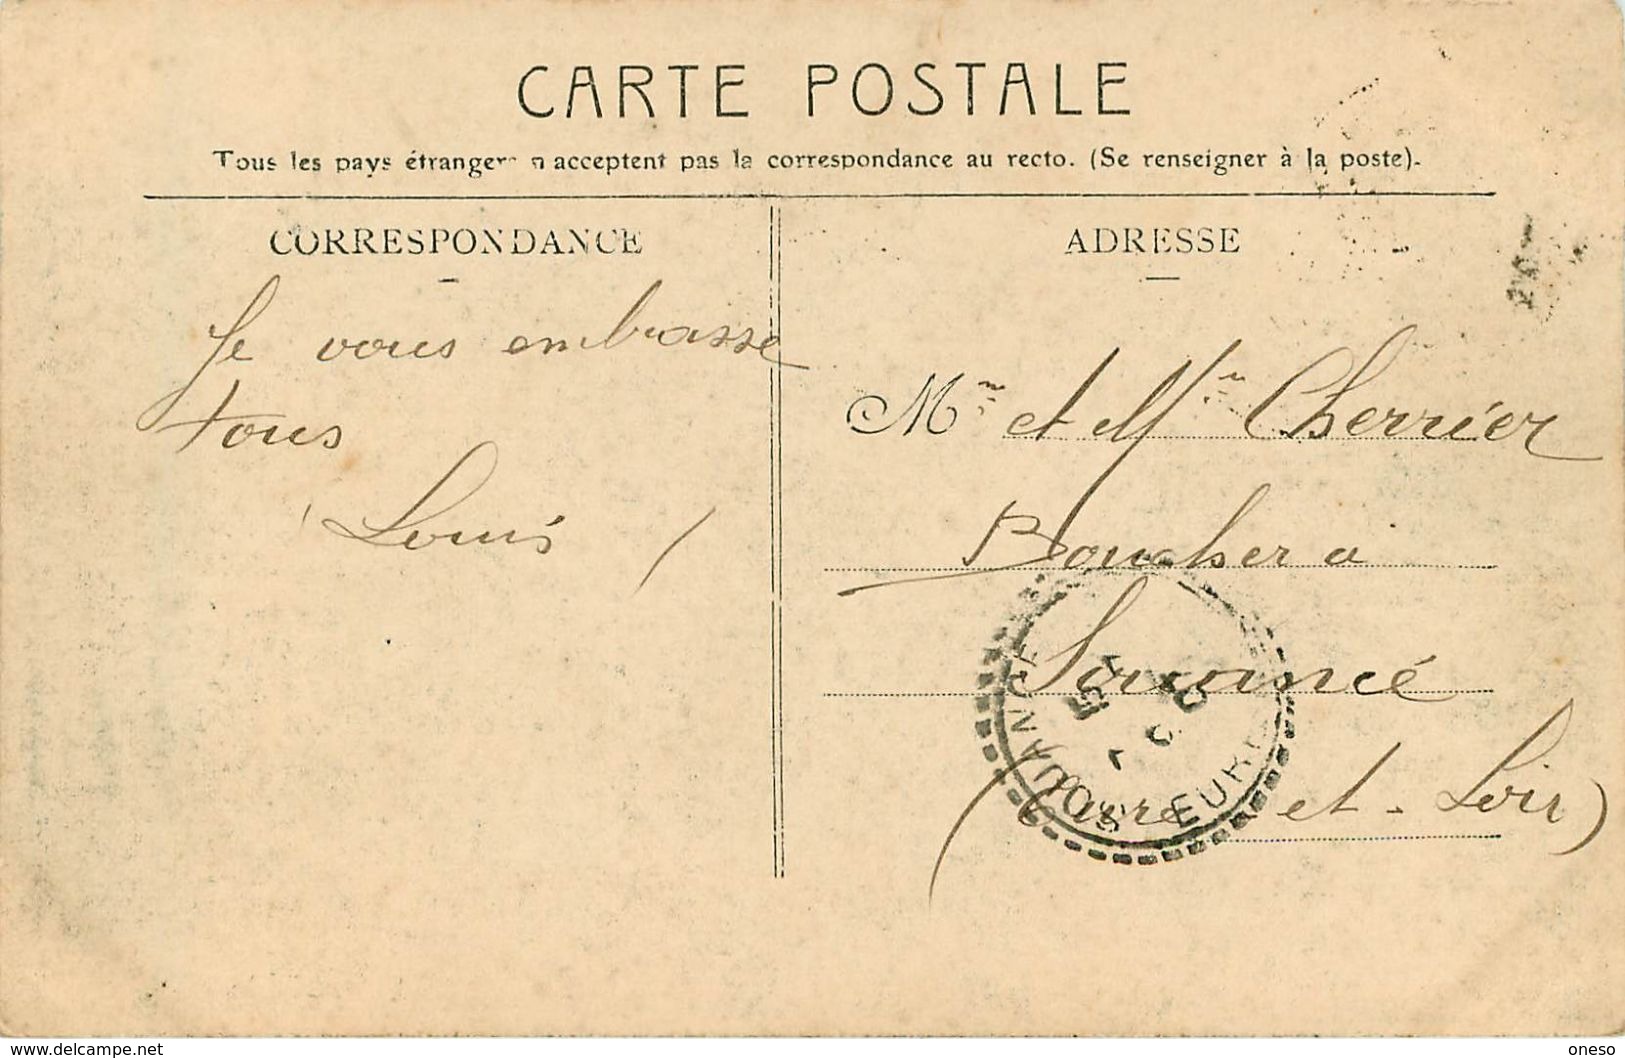 CARTE POSTALE
Tous les pays étrangers n'acceptent pas la correspondance au recto. (Se renseigner à la poste).
CORRESPONDANCE
Je vous embrasse
tous
Louis
ADRESSE
Mr et Mme Cherrier
Boucher à
Souancé
(Eure et-Loir)
SOUANCE
EURE
www.delcampe.net
oneso